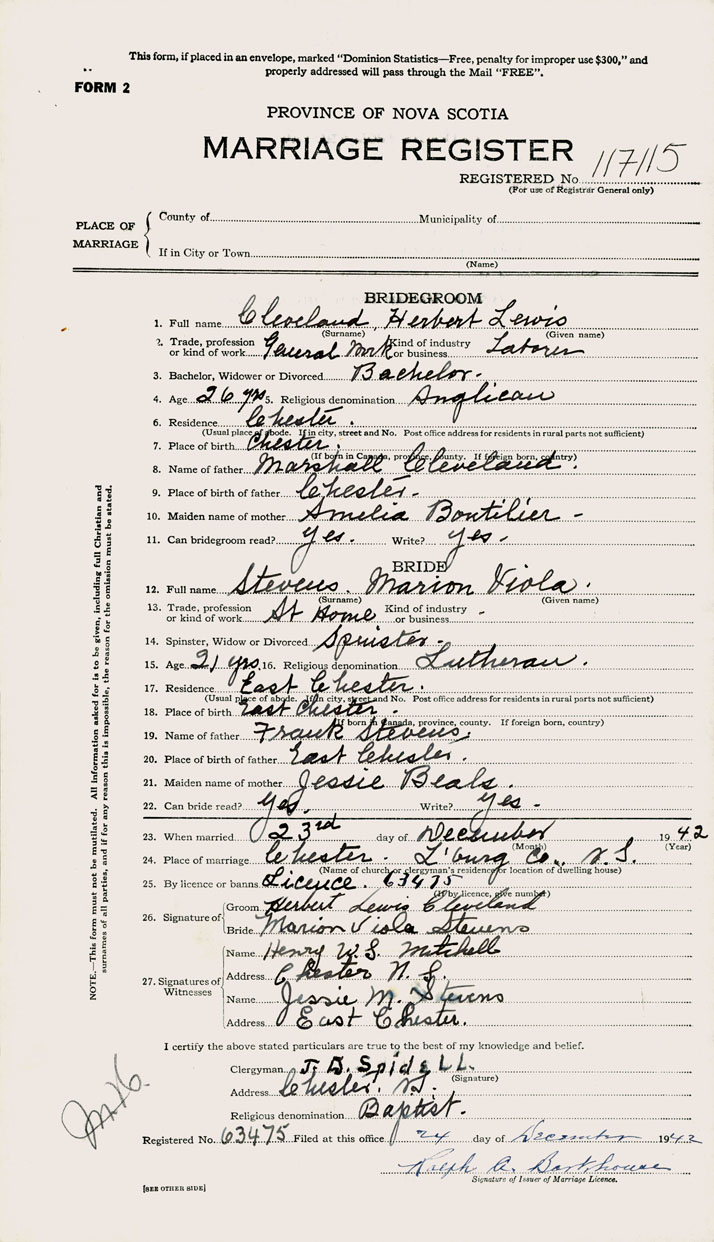 This form, if placed in an envelope, marked "Dominion Statistics—Free, penalty for improper use $300," and
properly addressed will pass through the Mail "FREE".
FORM 2
PROVINCE OF NOVA SCOTIA
MARRIAGE REGISTER
117115
REGISTERED No.
(For use of Registrar General only)
PLACE OF MARRIAGE
County of Municipality of
If in City or Town
(Name)
BRIDEGROOM
1. Full name Cleveland, Herbert Lewis
(Surname) (Given name)
2. Trade, profession or kind of work General Work Kind of industry or business Laborer
3. Bachelor, Widower or Divorced Bachelor.
4. Age 26 yrs 5. Religious denomination Anglican
6. Residence Chester.
(Usual place of abode. If in city, street and No. Post office address for residents in rural parts not sufficient)
7. Place of birth Chester.
(If born in Canada, province, county. If foreign born, country)
8. Name of father Marshall Cleveland.
9. Place of birth of father Chester.
10. Maiden name of mother Amelia Boutilier -
11. Can bridegroom read? yes. Write? yes -
BRIDE
12. Full name Stevens. Marion Viola.
(Surname) (Given name)
13. Trade, profession or kind of work At Home Kind of industry or business -
14. Spinster, Widow or Divorced Spinster -
15. Age 21 yrs 16. Religious denomination Lutheran.
17. Residence East Chester.
(Usual place of abode. If in city, street and No. Post office address for residents in rural parts not sufficient)
18. Place of birth East Chester.
(If born in Canada, province, county. If foreign born, country)
19. Name of father Frank Stevens.
20. Place of birth of father East Chester.
21. Maiden name of mother Jessie Beals.
22. Can bride read? yes. Write? yes -
23. When married 23rd day of December 1942
(Month) (Year)
24. Place of marriage Chester - L'burg Co., N.S.
(Name of church or clergyman's residence or location of dwelling house)
25. By licence or banns Licence. 63475
(If by licence, give number)
26. Signature of
Groom Herbert Lewis Cleveland
Bride Marion Viola Stevens
27. Signatures of Witnesses
Name Henry W.S. Mitchell
Address Chester N.S.
Name Jessie M. Stevens
Address East Chester.
I certify the above stated particulars are true to the best of my knowledge and belief.
Clergyman J. D. Spidell.
(Signature)
Address Chester. N.S.
Religious denomination Baptist.
Registered No. 63475 Filed at this office 24 day of December 1942
Ralph A. Barkhouse
Signature of Issuer of Marriage Licence.
[SEE OTHER SIDE]
NOTE.—This form must not be mutilated. All information asked for is to be given, including full Christian and
surnames of all parties, and if for any reason this is impossible, the reason for the omission must be stated.